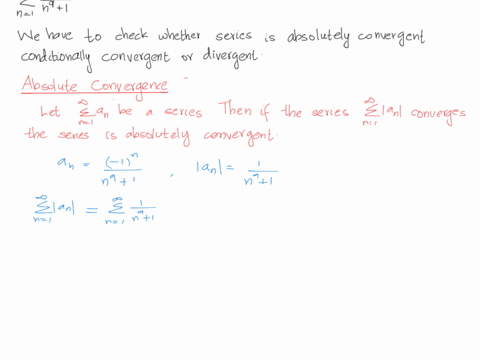 ∞∑n=1 n⁹+1
We have to check whether series is absolutely convergent
conditionally convergent or divergent.
Absolute Convergence
Let ∞∑n=1 aₙ be a series. Then if the series ∞∑n=1 |aₙ| converges
the series is absolutely convergent.
aₙ = (-1)ⁿ/(n⁹+1) , |aₙ| = 1/(n⁹+1)
∞∑n=1 |aₙ| = ∞∑n=1 1/(n⁹+1)